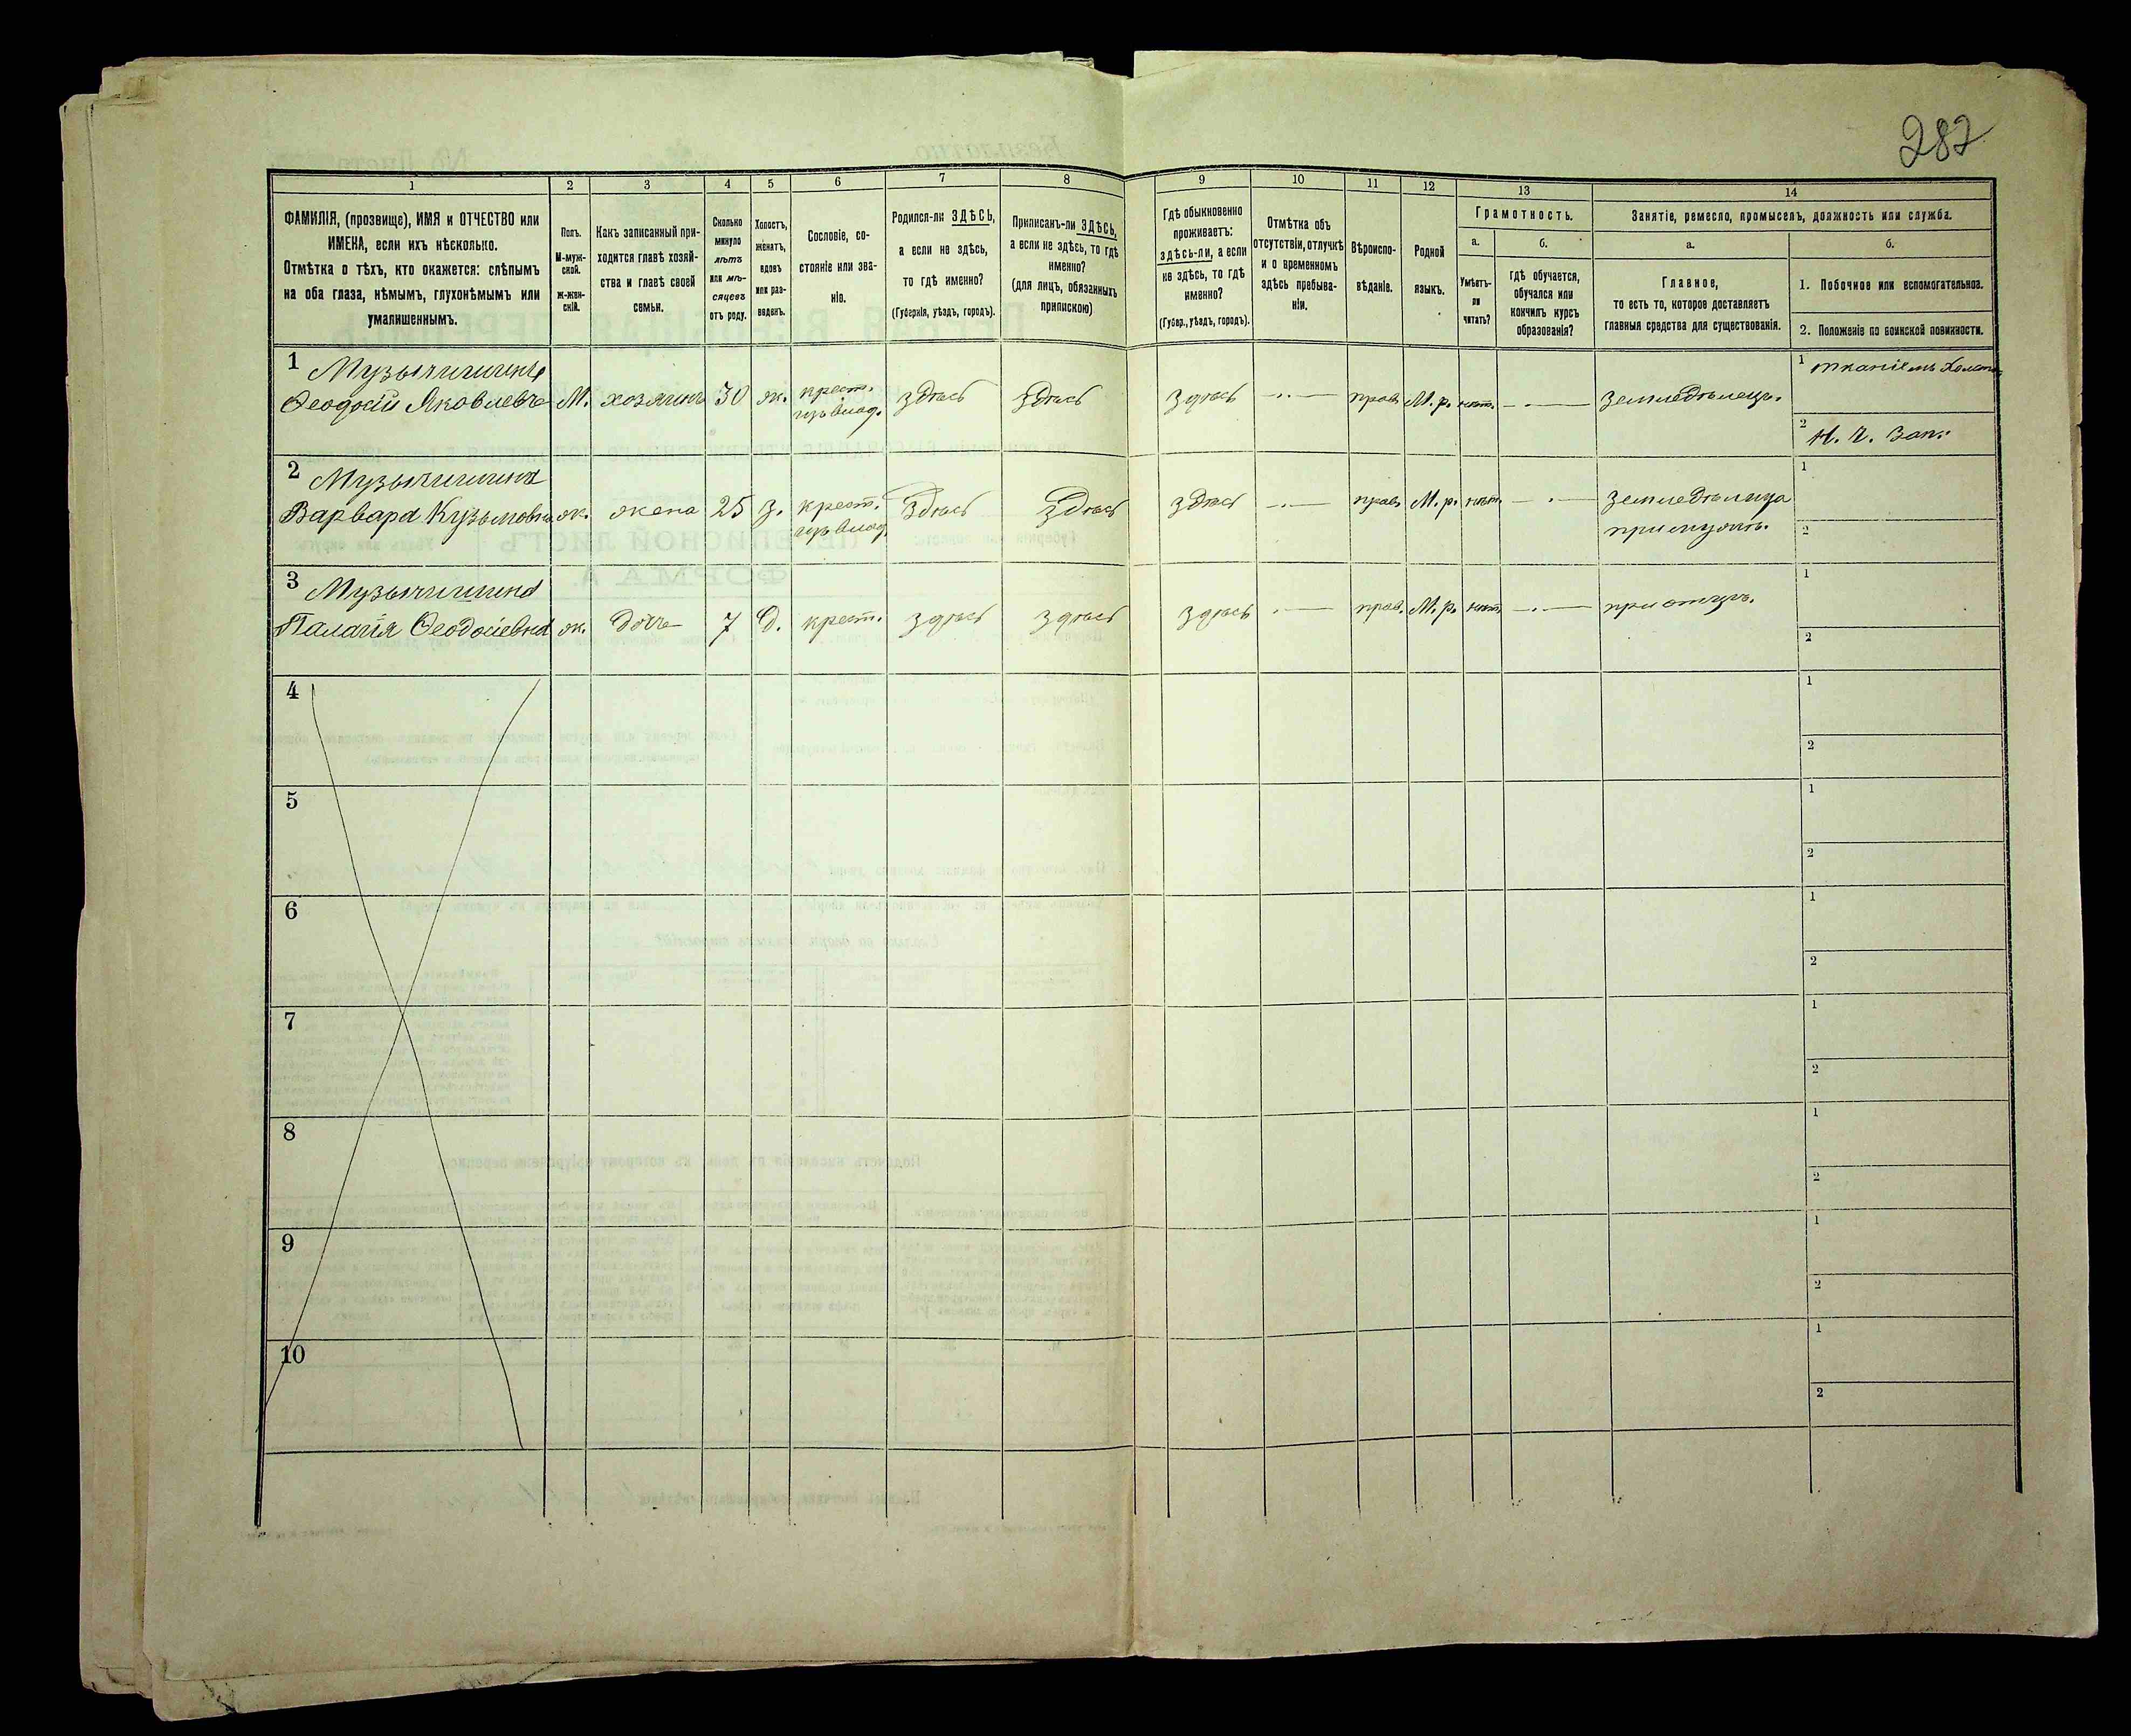 282
1
2
3
4
5
6
7
8
9
10
11
12
13
14
ФАМИЛІЯ, (прозвище), ИМЯ и ОТЧЕСТВО или
ИМЕНА, если ихъ нѣсколько.
Отмѣтка о тѣхъ, кто окажется: слѣпымъ
на оба глаза, нѣмымъ, глухонѣмымъ или
умалишеннымъ.
Полъ.
М-муж-
ской.
Ж-жен-
скій.
Какъ записанный при-
ходится главѣ хозяй-
ства и главѣ своей
семьи.
Сколько
минуло
лѣтъ
или мѣ-
сяцевъ
отъ роду.
Холостъ,
женатъ,
вдовъ
или раз-
веденъ.
Сословіе, со-
стояніе или зва-
ніе.
Родился-ли ЗДѢСЬ,
а если не здѣсь,
то гдѣ именно?
(Губернія, уѣздъ, городъ).
Приписанъ-ли ЗДѢСЬ,
а если не здѣсь, то гдѣ
именно?
(для лицъ, обязанныхъ
припискою)
Гдѣ обыкновенно
проживаетъ:
здѣсь-ли, а если
не здѣсь, то гдѣ
именно?
(Губер., уѣздъ, городъ).
Отмѣтка объ
отсутствіи, отлучкѣ
и о временномъ
здѣсь пребыва-
ніи.
Вѣроиспо-
вѣданіе.
Родной
языкъ.
Грамотность.
а.
Умѣетъ-
ли
читать?
б.
гдѣ обучается,
обучался или
кончилъ курсъ
образованія?
Занятіе, ремесло, промыселъ, должность или служба.
а.
Главное,
то есть то, которое доставляетъ
главныя средства для существованія.
б.
1. Побочное или вспомогательное.
2. Положеніе по воинской повинности.
1
Ѳеодосій Яковлевъ М. хозяинъ 30 ж. крест. здѣсь здѣсь здѣсь прав. М.р. нѣт. земледѣлецъ.
1
2
2
Варвара Кузьмовна ж. жена 25 з. крест. здѣсь здѣсь здѣсь прав. М.р. нѣт.
при мужѣ.
1
2
3
Палагія Ѳеодосіевна ж. дочь 7 д. крест. здѣсь здѣсь здѣсь прав. М.р. нѣт. при отцѣ.
1
2
4
1
2
5
1
2
6
1
2
7
1
2
8
1
2
9
1
2
10
1
2